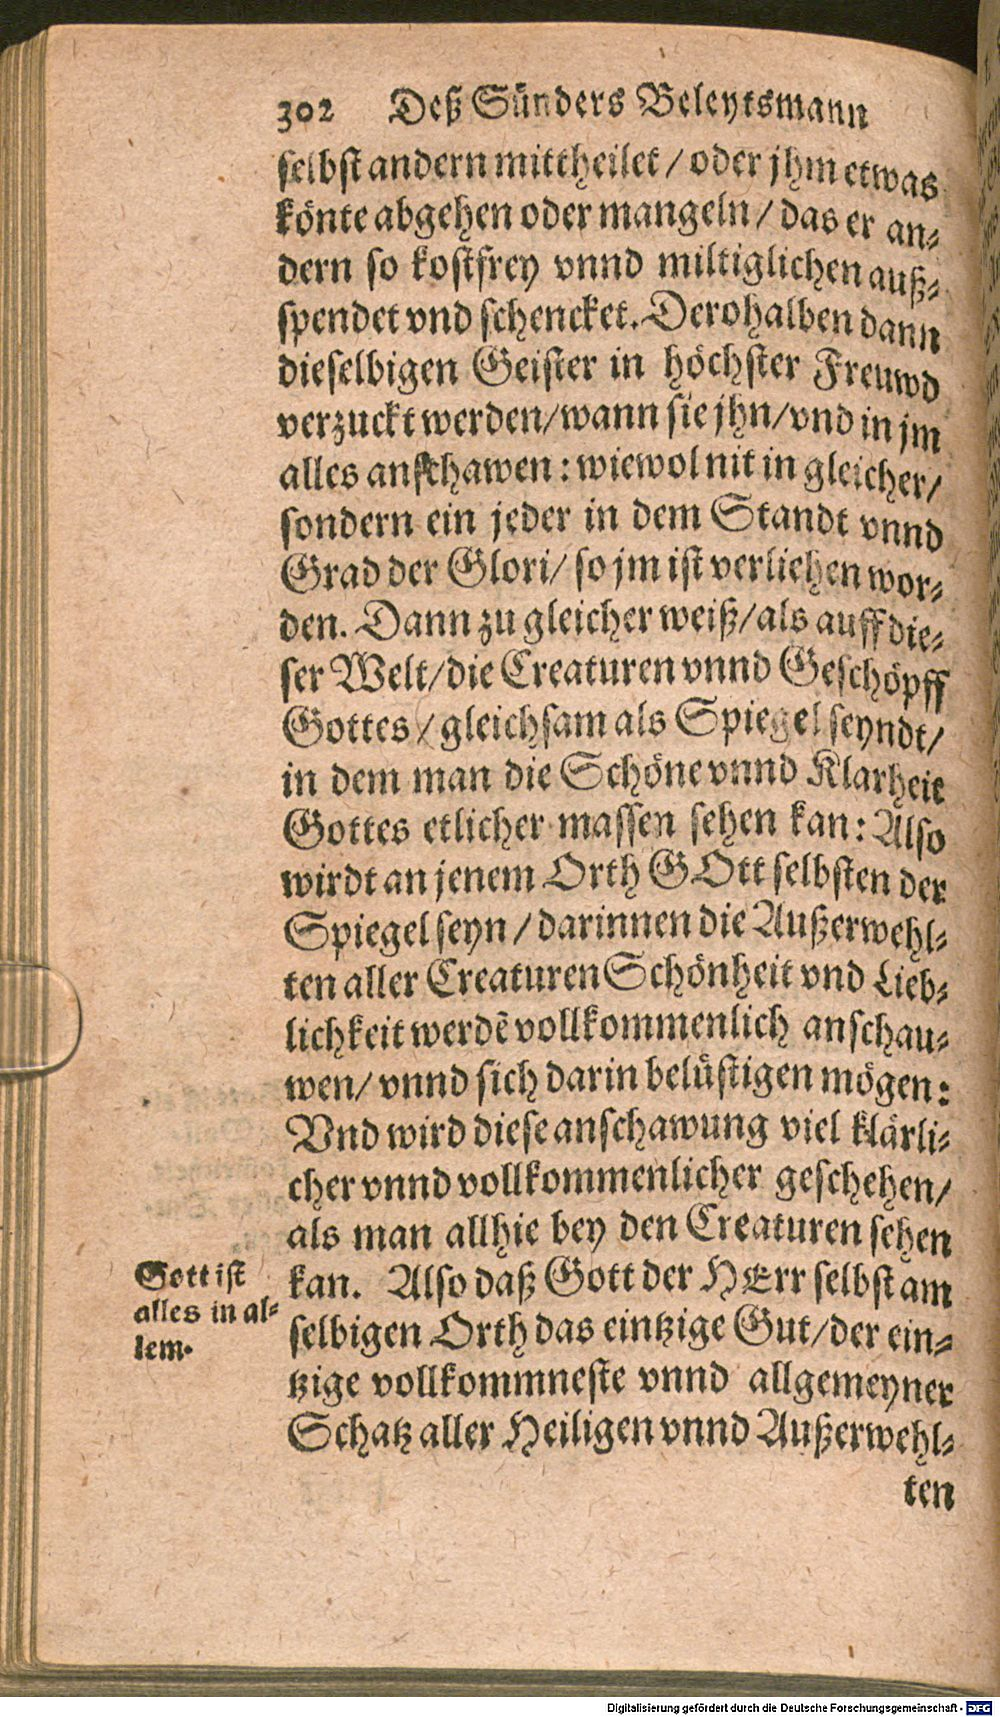 302 Deß Sünders Beleytsmann
selbst andern mittheilet / oder jhm etwas
könte abgehen oder mangeln / das er an⸗
dern so kostfrey vnnd miltiglichen auß⸗
spendet vnd schencket. Derohalben dann
dieselbigen Geister in höchster Freuwd
verzuckt werden/wann sie jhn/vnd in jm
alles anschawen: wiewol nit in gleicher/
sondern ein jeder in dem Standt vnnd
Grad der Glori/ so jm ist verliehen wor⸗
den. Dann zu gleicher weiß/als auff die⸗
ser Welt/die Creaturen vnnd Geschöpff
Gottes / gleichsam als Spiegel seyndt/
in dem man die Schöne vnnd Klarheit
Gottes etlicher massen sehen kan: Also
wirdt an jenem Orth GOtt selbsten der
Spiegel seyn / darinnen die Außerwehl⸗
ten aller Creaturen Schönheit vnd Lieb⸗
lichkeit werdẽ vollkommenlich anschau⸗
wen/ vnnd sich darin belüstigen mögen:
Vnd wird diese anschawung viel klärli⸗
cher vnnd vollkommenlicher geschehen/
als man allhie bey den Creaturen sehen
kan. Also daß Gott der HErr selbst am
selbigen Orth das eintzige Gut/der ein⸗
tzige vollkommneste vnnd allgemeyner
Schatz aller Heiligen vnnd Außerwehl⸗
ten
Gott ist
alles in al⸗
lem.
Digitalisierung gefördert durch die Deutsche Forschungsgemeinschaft - DFG